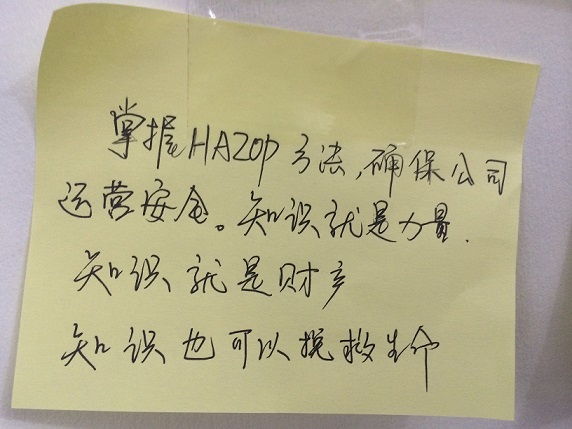 掌握HAZOP方法,确保公司
运营安全。知识就是力量.
知识就是财产
知识也可以挽救生命